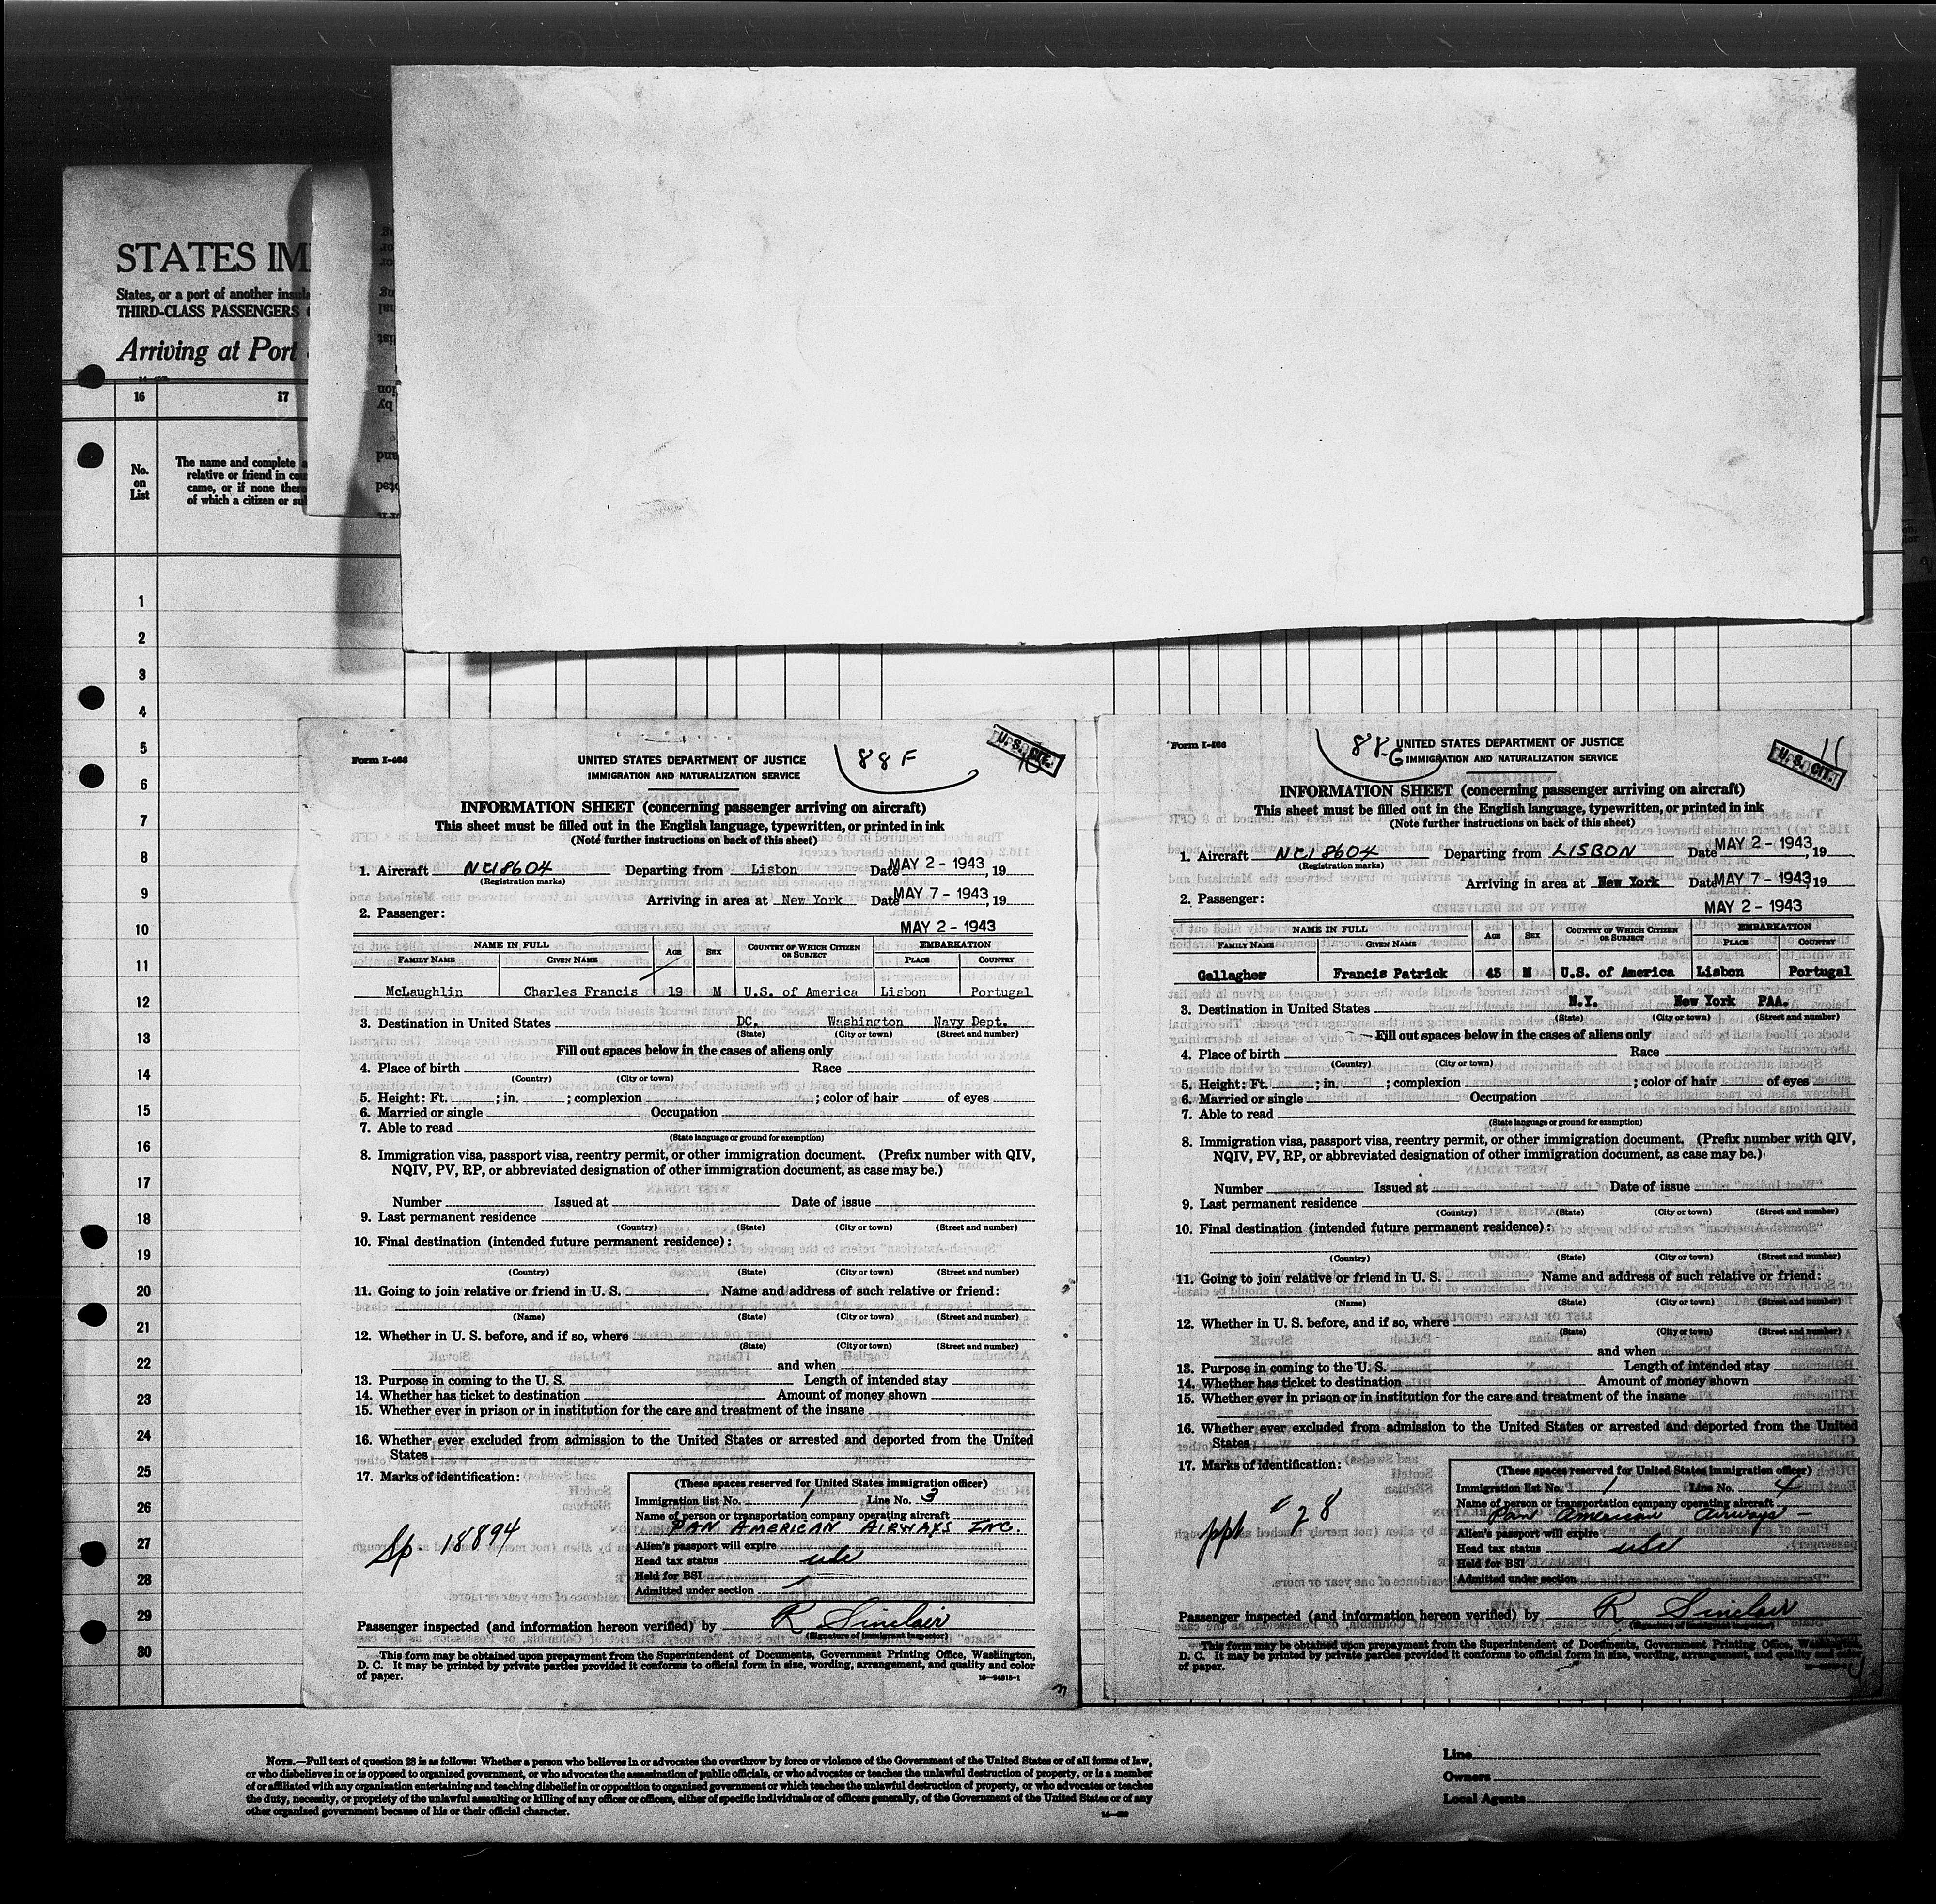 STATES IM
States, or a port of another insula
THIRD-CLASS PASSENGERS
Arriving at Port
16 17
No. on List
The name and complete a
relative or friend in cou
came, or if none there
of which a citizen or su
1
2
3
4
5
6
7
8
9
10
11
12
13
14
15
16
17
18
19
20
21
22
23
24
25
26
27
28
29
30
Form I-466
88 F
U. S. CIT.
10
UNITED STATES DEPARTMENT OF JUSTICE
IMMIGRATION AND NATURALIZATION SERVICE
INFORMATION SHEET (concerning passenger arriving on aircraft)
This sheet must be filled out in the English language, typewritten, or printed in ink
(Note further instructions on back of this sheet)
1. Aircraft NC18604 Departing from Lisbon Date MAY 2 - 1943, 19
(Registration marks)
Arriving in area at New York Date MAY 7 - 1943, 19
2. Passenger:
MAY 2 - 1943
NAME IN FULL AGE SEX COUNTRY OF WHICH CITIZEN OR SUBJECT EMBARKATION
FAMILY NAME GIVEN NAME PLACE COUNTRY
McLaughlin Charles Francis 19 M U.S. of America Lisbon Portugal
3. Destination in United States DC. Washington Navy Dept.
(State) (City or town) (Street and number)
Fill out spaces below in the cases of aliens only
4. Place of birth Race
(Country) (City or town)
5. Height: Ft. ; in. ; complexion ; color of hair of eyes
6. Married or single Occupation
7. Able to read
(State language or ground for exemption)
8. Immigration visa, passport visa, reentry permit, or other immigration document. (Prefix number with QIV,
NQIV, PV, RP, or abbreviated designation of other immigration document, as case may be.)
Number Issued at Date of issue
9. Last permanent residence
(Country) (State) (City or town) (Street and number)
10. Final destination (intended future permanent residence):
(Country) (State) (City or town) (Street and number)
11. Going to join relative or friend in U. S. Name and address of such relative or friend:
(Name) (State) (City or town) (Street and number)
12. Whether in U. S. before, and if so, where
(State) (City or town) (Street and number)
and when
13. Purpose in coming to the U. S. Length of intended stay
14. Whether has ticket to destination Amount of money shown
15. Whether ever in prison or in institution for the care and treatment of the insane
16. Whether ever excluded from admission to the United States or arrested and deported from the United
States
17. Marks of identification:
Sp 18894
(These spaces reserved for United States immigration officer)
Immigration list No. 1 Line No. 3
Name of person or transportation company operating aircraft
PAN AMERICAN AIRWAYS INC.
Alien's passport will expire
Head tax status usc
Held for BSI
Admitted under section
Passenger inspected (and information hereon verified) by R Sinclair
(Signature of immigrant inspector)
This form may be obtained upon prepayment from the Superintendent of Documents, Government Printing Office, Washington,
D. C. It may be printed by private parties provided it conforms to official form in size, wording, arrangement, and quality and color
of paper.
Form I-466
88 G
U. S. CIT.
11
UNITED STATES DEPARTMENT OF JUSTICE
IMMIGRATION AND NATURALIZATION SERVICE
INFORMATION SHEET (concerning passenger arriving on aircraft)
This sheet must be filled out in the English language, typewritten, or printed in ink
(Note further instructions on back of this sheet)
1. Aircraft NC18604 Departing from LISBON Date MAY 2 - 1943, 19
(Registration marks)
Arriving in area at New York Date MAY 7 - 1943, 19
2. Passenger:
MAY 2 - 1943
NAME IN FULL AGE SEX COUNTRY OF WHICH CITIZEN OR SUBJECT EMBARKATION
FAMILY NAME GIVEN NAME PLACE COUNTRY
Gallagher Francis Patrick 43 M U.S. of America Lisbon Portugal
3. Destination in United States N.Y. New York PAA.
(State) (City or town) (Street and number)
Fill out spaces below in the cases of aliens only
4. Place of birth Race
(Country) (City or town)
5. Height: Ft. ; in. ; complexion ; color of hair of eyes
6. Married or single Occupation
7. Able to read
(State language or ground for exemption)
8. Immigration visa, passport visa, reentry permit, or other immigration document. (Prefix number with QIV,
NQIV, PV, RP, or abbreviated designation of other immigration document, as case may be.)
Number Issued at Date of issue
9. Last permanent residence
(Country) (State) (City or town) (Street and number)
10. Final destination (intended future permanent residence):
(Country) (State) (City or town) (Street and number)
11. Going to join relative or friend in U. S. Name and address of such relative or friend:
(Name) (State) (City or town) (Street and number)
12. Whether in U. S. before, and if so, where
(State) (City or town) (Street and number)
and when
13. Purpose in coming to the U. S. Length of intended stay
14. Whether has ticket to destination Amount of money shown
15. Whether ever in prison or in institution for the care and treatment of the insane
16. Whether ever excluded from admission to the United States or arrested and deported from the United
States
17. Marks of identification:
ppt # 28
(These spaces reserved for United States immigration officer)
Immigration list No. 1 Line No. 4
Name of person or transportation company operating aircraft
Pan American Airways -
Alien's passport will expire
Head tax status usc
Held for BSI
Admitted under section
Passenger inspected (and information hereon verified) by R Sinclair
(Signature of immigrant inspector)
This form may be obtained upon prepayment from the Superintendent of Documents, Government Printing Office, Washington,
D. C. It may be printed by private parties provided it conforms to official form in size, wording, arrangement, and quality and color
of paper.
NOTE.—Full text of question 28 is as follows: Whether a person who believes in or advocates the overthrow by force or violence of the Government of the United States or of all forms of law,
or who disbelieves in or is opposed to organized government, or who advocates the assassination of public officials, or who advocates or teaches the unlawful destruction of property, or is a member
of or affiliated with any organization entertaining and teaching disbelief in or opposition to organized government or which teaches the unlawful destruction of property, or who advocates or teaches
the duty, necessity, or propriety of the unlawful assaulting or killing of any officer or officers, either of specific individuals or of officers generally, of the Government of the United States or of any
other organized government because of his or their official character.
Line
Owners
Local Agents